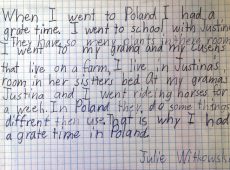 When I went to Poland I had a
grate time. I went to school with Justina
They have so meny plants in there room
I went to my grama and my cusens
that live on a farm, I live in Justinas
room in her sisters bed At my grama
Justina and I went riding horses for
a week. In Poland they do some things
diffrent then use. That is why I had
a grate time in Poland.
Julie Witkowski